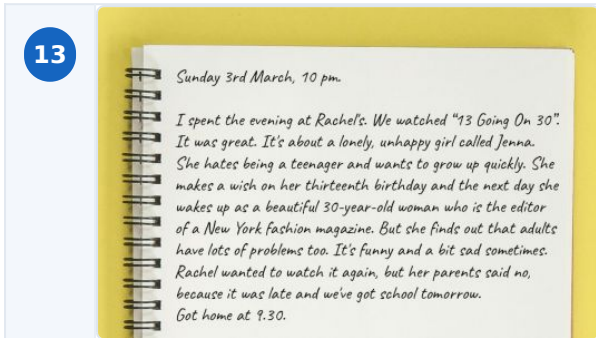 13
Sunday 3rd March, 10 pm.
I spent the evening at Rachel's. We watched "13 Going On 30".
It was great. It's about a lonely, unhappy girl called Jenna.
She hates being a teenager and wants to grow up quickly. She
makes a wish on her thirteenth birthday and the next day she
wakes up as a beautiful 30-year-old woman who is the editor
of a New York fashion magazine. But she finds out that adults
have lots of problems too. It's funny and a bit sad sometimes.
Rachel wanted to watch it again, but her parents said no,
because it was late and we've got school tomorrow.
Got home at 9.30.